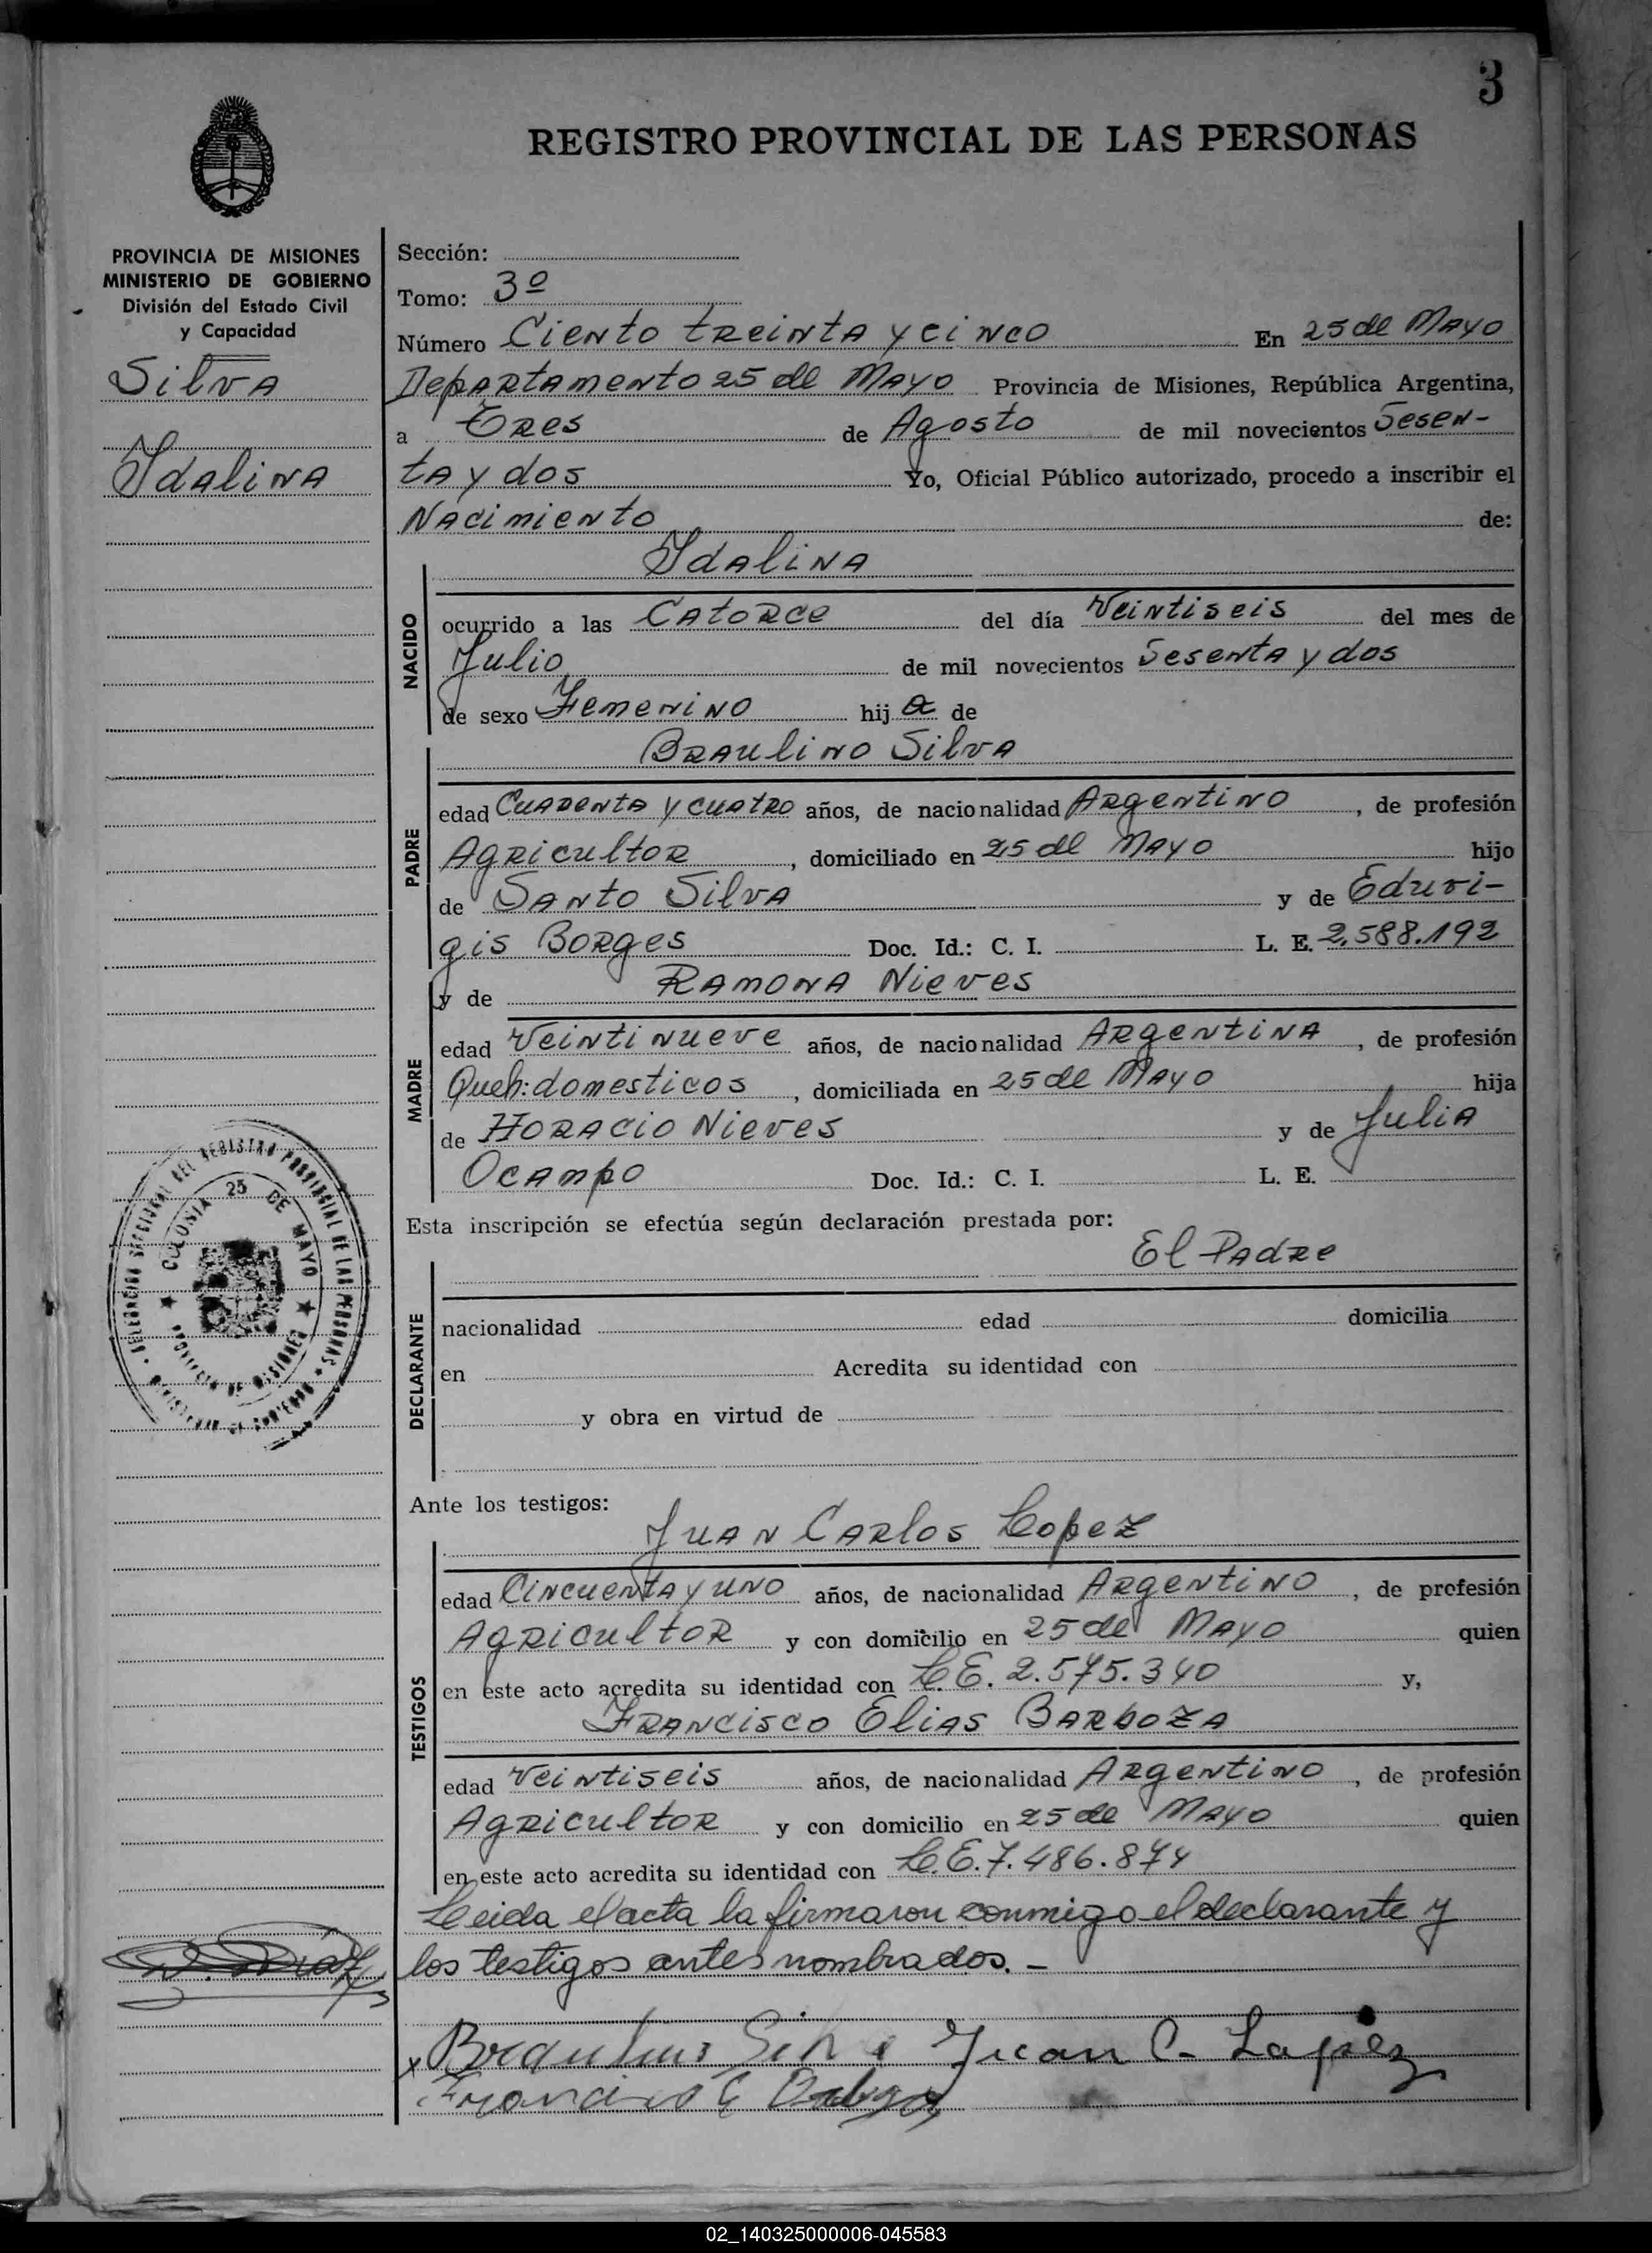 3
REGISTRO PROVINCIAL DE LAS PERSONAS
PROVINCIA DE MISIONES
MINISTERIO DE GOBIERNO
División del Estado Civil
y Capacidad
Silva
Idalina
Sección:
Tomo: 3º
Número Ciento treinta y cinco En 25 de Mayo
Departamento 25 de Mayo Provincia de Misiones, República Argentina,
a Tres de Agosto de mil novecientos Sesen-
ta y dos Yo, Oficial Público autorizado, procedo a inscribir el
Nacimiento de:
Idalina
NACIDO
ocurrido a las Catorce del día Veintiseis del mes de
Julio de mil novecientos Sesenta y dos
de sexo Femenino hij a de
Braulino Silva
PADRE
edad Cuarenta y cuatro años, de nacionalidad Argentino, de profesión
Agricultor, domiciliado en 25 de Mayo hijo
de Santo Silva y de Eduvi-
gis Borges Doc. Id.: C. I. L. E. 2.588.192
y de Ramona Nieves
MADRE
edad Veintinueve años, de nacionalidad Argentina, de profesión
Queh: domesticos, domiciliada en 25 de Mayo hija
de Horacio Nieves y de Julia
Ocampo Doc. Id.: C. I. L. E.
DELEGACION SECCIONAL DEL REGISTRO PROVINCIAL DE LAS PERSONAS
COLONIA 25 DE MAYO
PROVINCIA DE MISIONES
MINISTERIO DE GOBIERNO
Esta inscripción se efectúa según declaración prestada por:
El Padre
DECLARANTE
nacionalidad edad domicilia
en Acredita su identidad con
y obra en virtud de
Ante los testigos:
Juan Carlos Lopez
TESTIGOS
edad Cincuenta y uno años, de nacionalidad Argentino, de profesión
Agricultor y con domicilio en 25 de Mayo quien
en este acto acredita su identidad con L.E. 2.575.340 y,
Francisco Elias Barboza
edad Veintiseis años, de nacionalidad Argentino, de profesión
Agricultor y con domicilio en 25 de Mayo quien
en este acto acredita su identidad con L.E. 7.486.874
Leida el acta la firmaron conmigo el declarante y
los testigos antes nombrados. -
x Juan C. Lopiez
02_140325000006-045583